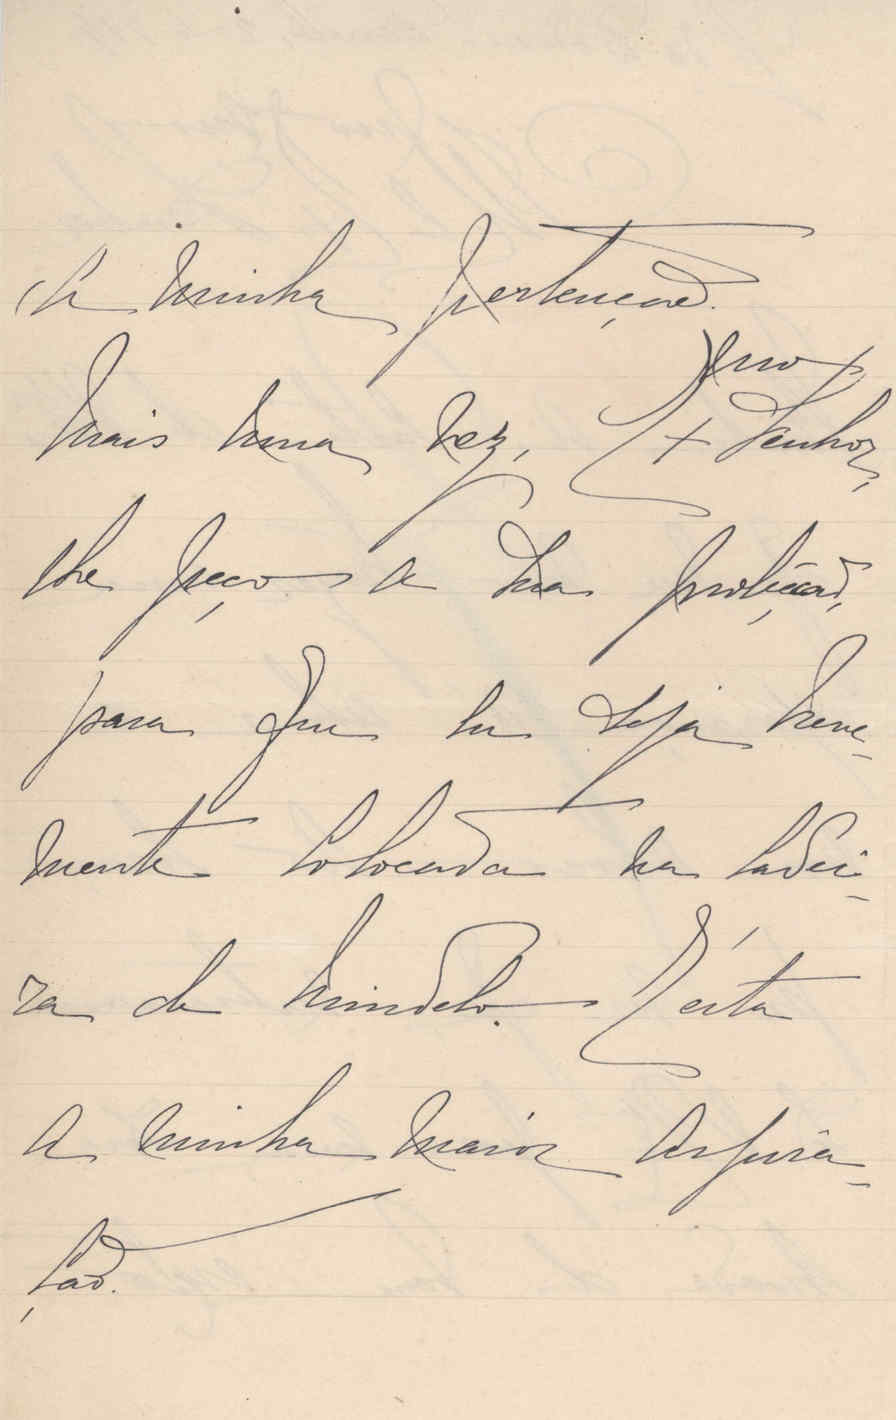 a minha pertenção.
Mais uma vez, Exmo Senhor,
lhe peço a sua proteção,
para que eu seja breve-
mente colocada na cadei-
ra de Mindelo. É esta
a minha maior aspira-
ção.